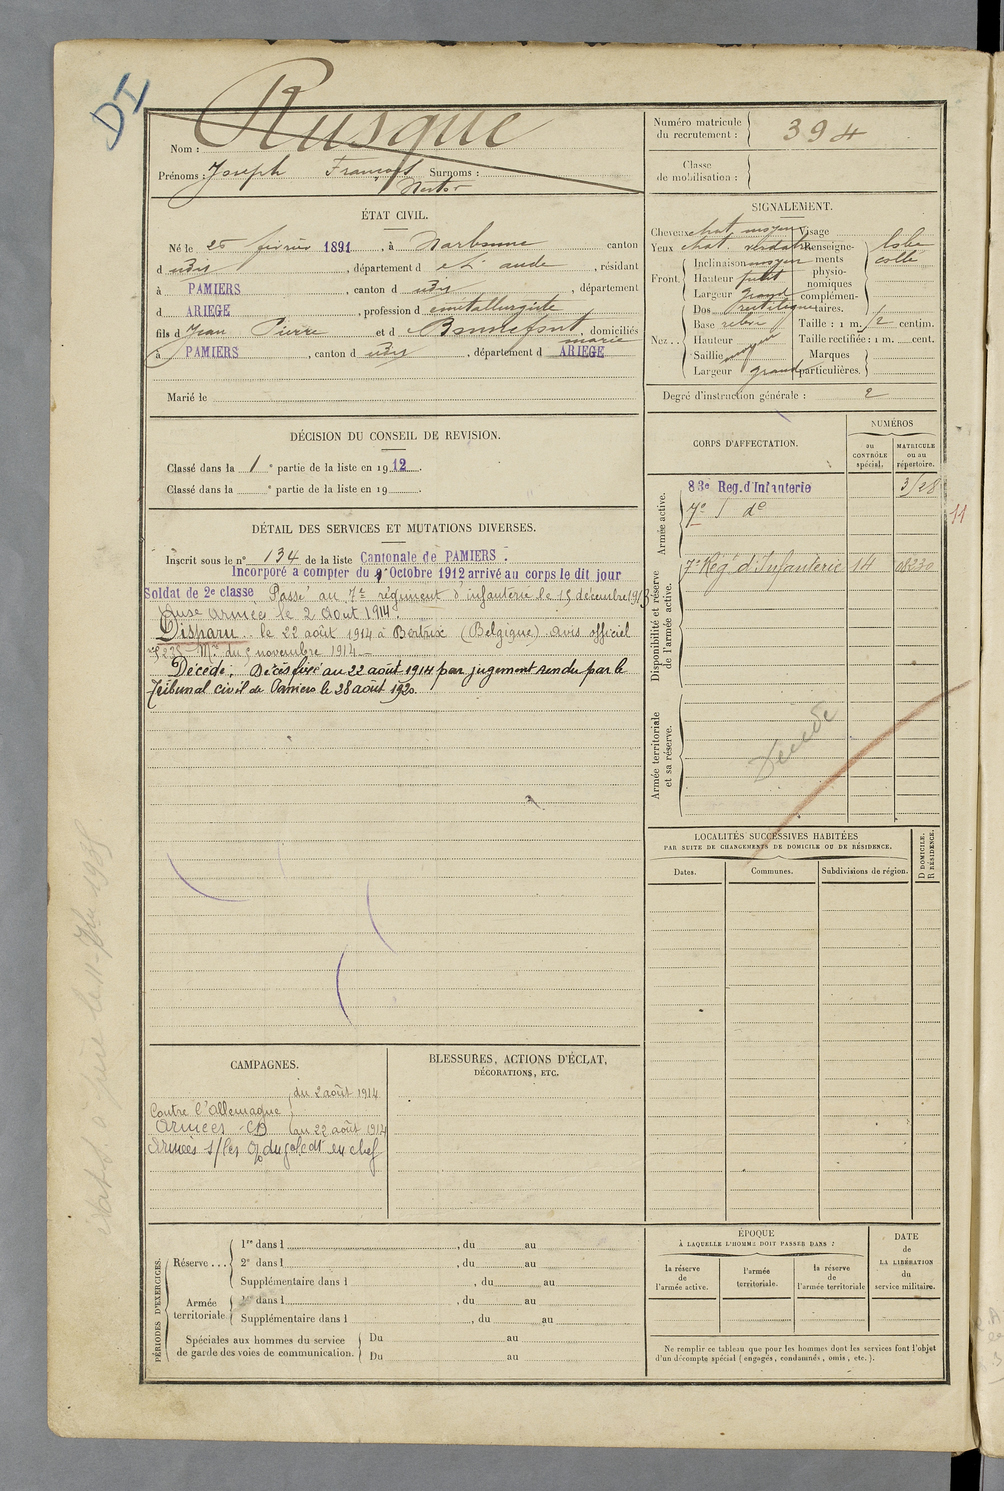 DI
Nom : Rusque
Prénoms : Joseph François Surnoms :
Nestor
Numéro matricule
du recrutement : 394
Classe
de mobilisation :
ÉTAT CIVIL.
Né le 26 février 1891, à Narbonne canton
d udis, département d el aude, résidant
à PAMIERS, canton d udis, département
d ARIEGE, profession d métallurgiste
fils d Jean Pierre et d Bonnefont, domiciliés
marie
à PAMIERS, canton d udis, département d ARIEGE
Marié le
SIGNALEMENT.
Cheveux chat. moyen Visage
Yeux chat. verdatre Renseigne-
ments
physio-
nomiques
complémen-
taires.
lobe
collé
Front
Inclinaison moyen
Hauteur petit
Largeur grand
Nez . .
Dos rectiligne
Base relev
Hauteur
Saillie moyen
Largeur grand
Taille : 1 m. 72 centim.
Taille rectifiée : 1 m. cent.
Marques
particulières.
Degré d'instruction générale : 2
DÉCISION DU CONSEIL DE REVISION.
Classé dans la 1 e partie de la liste en 1912.
Classé dans la e partie de la liste en 19 .
DÉTAIL DES SERVICES ET MUTATIONS DIVERSES.
Inscrit sous le n° 134 de la liste Cantonale de PAMIERS.
Incorporé a compter du 9 Octobre 1912 arrivé au corps le dit jour
Soldat de 2e classe Passé au 7e régiment d'infanterie le 15 décembre 1913
Aux Armées le 2 Aout 1914.
Disparu le 22 août 1914 à Bertrix (Belgique) avis officiel
Mre du 5 novembre 1914 —
Décédé. Décès fixé au 22 août 1914 par jugement rendu par le
Tribunal civil de Pamiers le 28 août 1920.
CORPS D'AFFECTATION.
NUMÉROS
au
CONTRÔLE
spécial.
MATRICULE
ou au
répertoire.
Armée active.
83e Reg. d'Infanterie 3128
7e d° 11
Disponibilité et réserve
de l'armée active.
7e Rég. d'Infanterie 14 08230
Armée territoriale
et sa réserve.
Décédé
LOCALITÉS SUCCESSIVES HABITÉES
PAR SUITE DE CHANGEMENTS DE DOMICILE OU DE RÉSIDENCE.
Dates.
Communes.
Subdivisions de région.
D DOMICILE.
R RÉSIDENCE.
CAMPAGNES.
du 2 août 1914
Contre l'Allemagne
Armées CD au 22 août 1914
Armées s/les O. du gal cdt en chef
BLESSURES, ACTIONS D'ÉCLAT,
DÉCORATIONS, ETC.
PÉRIODES D'EXERCICES.
Réserve . . .
1re dans l , du au
2e dans l , du au
Supplémentaire dans l , du au
Armée
territoriale
1re dans l , du au
Supplémentaire dans l , du au
Spéciales aux hommes du service
de garde des voies de communication.
Du au
Du au
ÉPOQUE
À LAQUELLE L'HOMME DOIT PASSER DANS :
la réserve
de
l'armée active.
l'armée
territoriale.
la réserve
de
l'armée territoriale
DATE
de
LA LIBÉRATION
du
service militaire.
Ne remplir ce tableau que pour les hommes dont les services font l'objet
d'un décompte spécial (engagés, condamnés, omis, etc.).